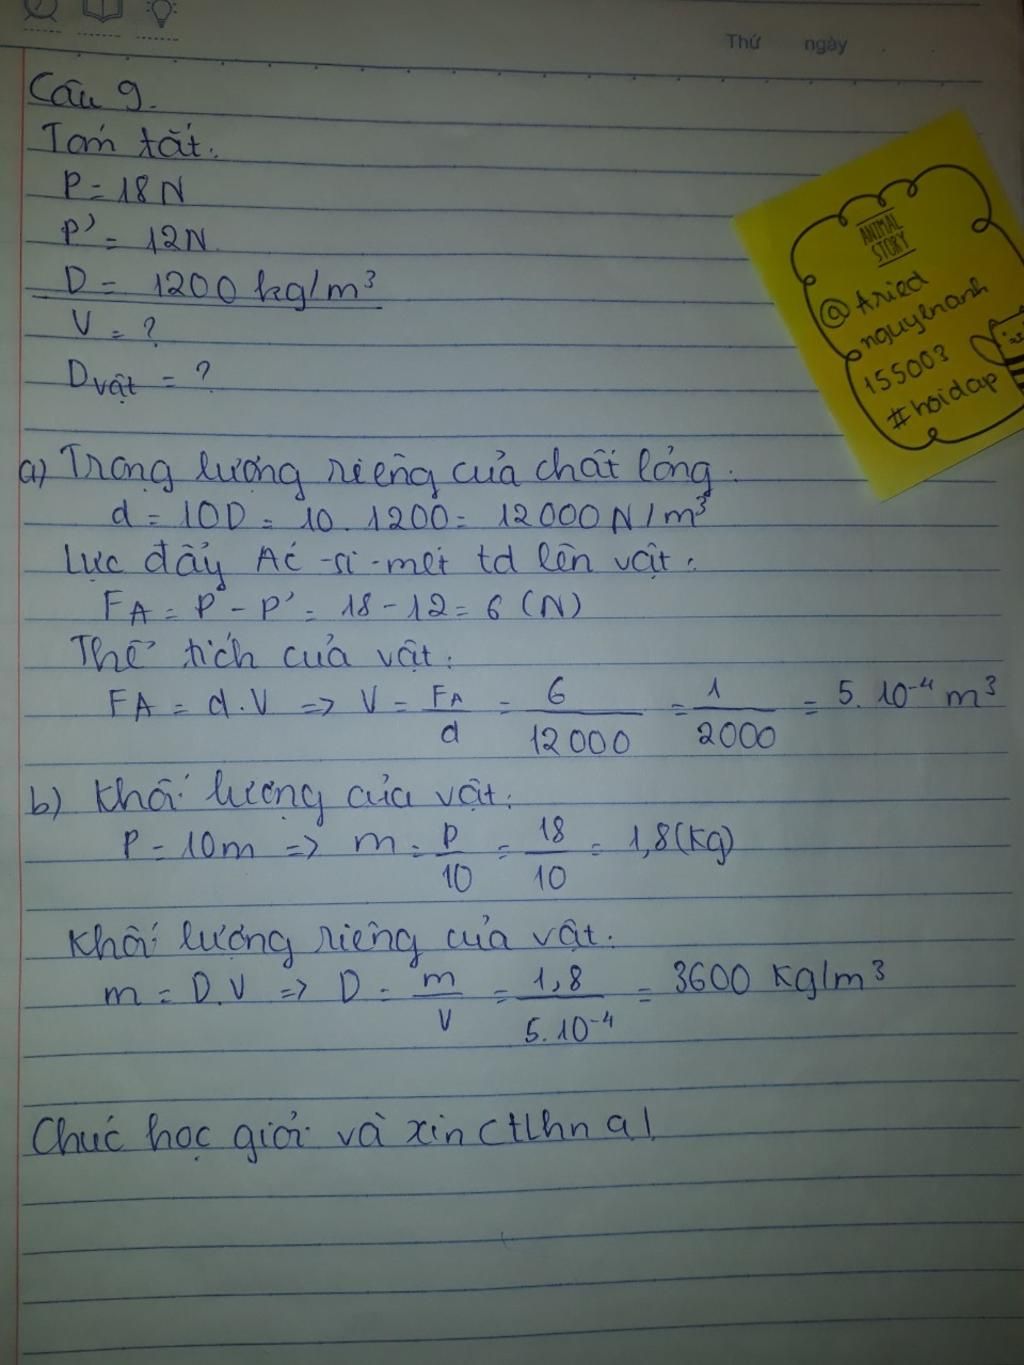 Thứ ngày
Câu 9.
Tóm tắt:
P = 18N
P' = 12N
D = 1200 kg/m³
V = ?
Dvật = ?
ANIMAL
STORY
@Aried
nguyenanh
155003
#hoidap
a) Trọng lượng riêng của chất lỏng:
d = 10D = 10.1200 = 12000N/m³
Lực đẩy Ác-si-mét td lên vật:
FA = P - P' = 18 - 12 = 6 (N)
Thể tích của vật:
FA = d.V => V = FA/d = 6/12000 = 1/2000 = 5.10⁻⁴ m³
b) Khối lượng của vật:
P = 10m => m = P/10 = 18/10 = 1,8(kg)
Khối lượng riêng của vật:
m = D.V => D = m/V = 1,8/5.10⁻⁴ = 3600 kg/m³
Chúc học giỏi và xin ctlhn ạ!